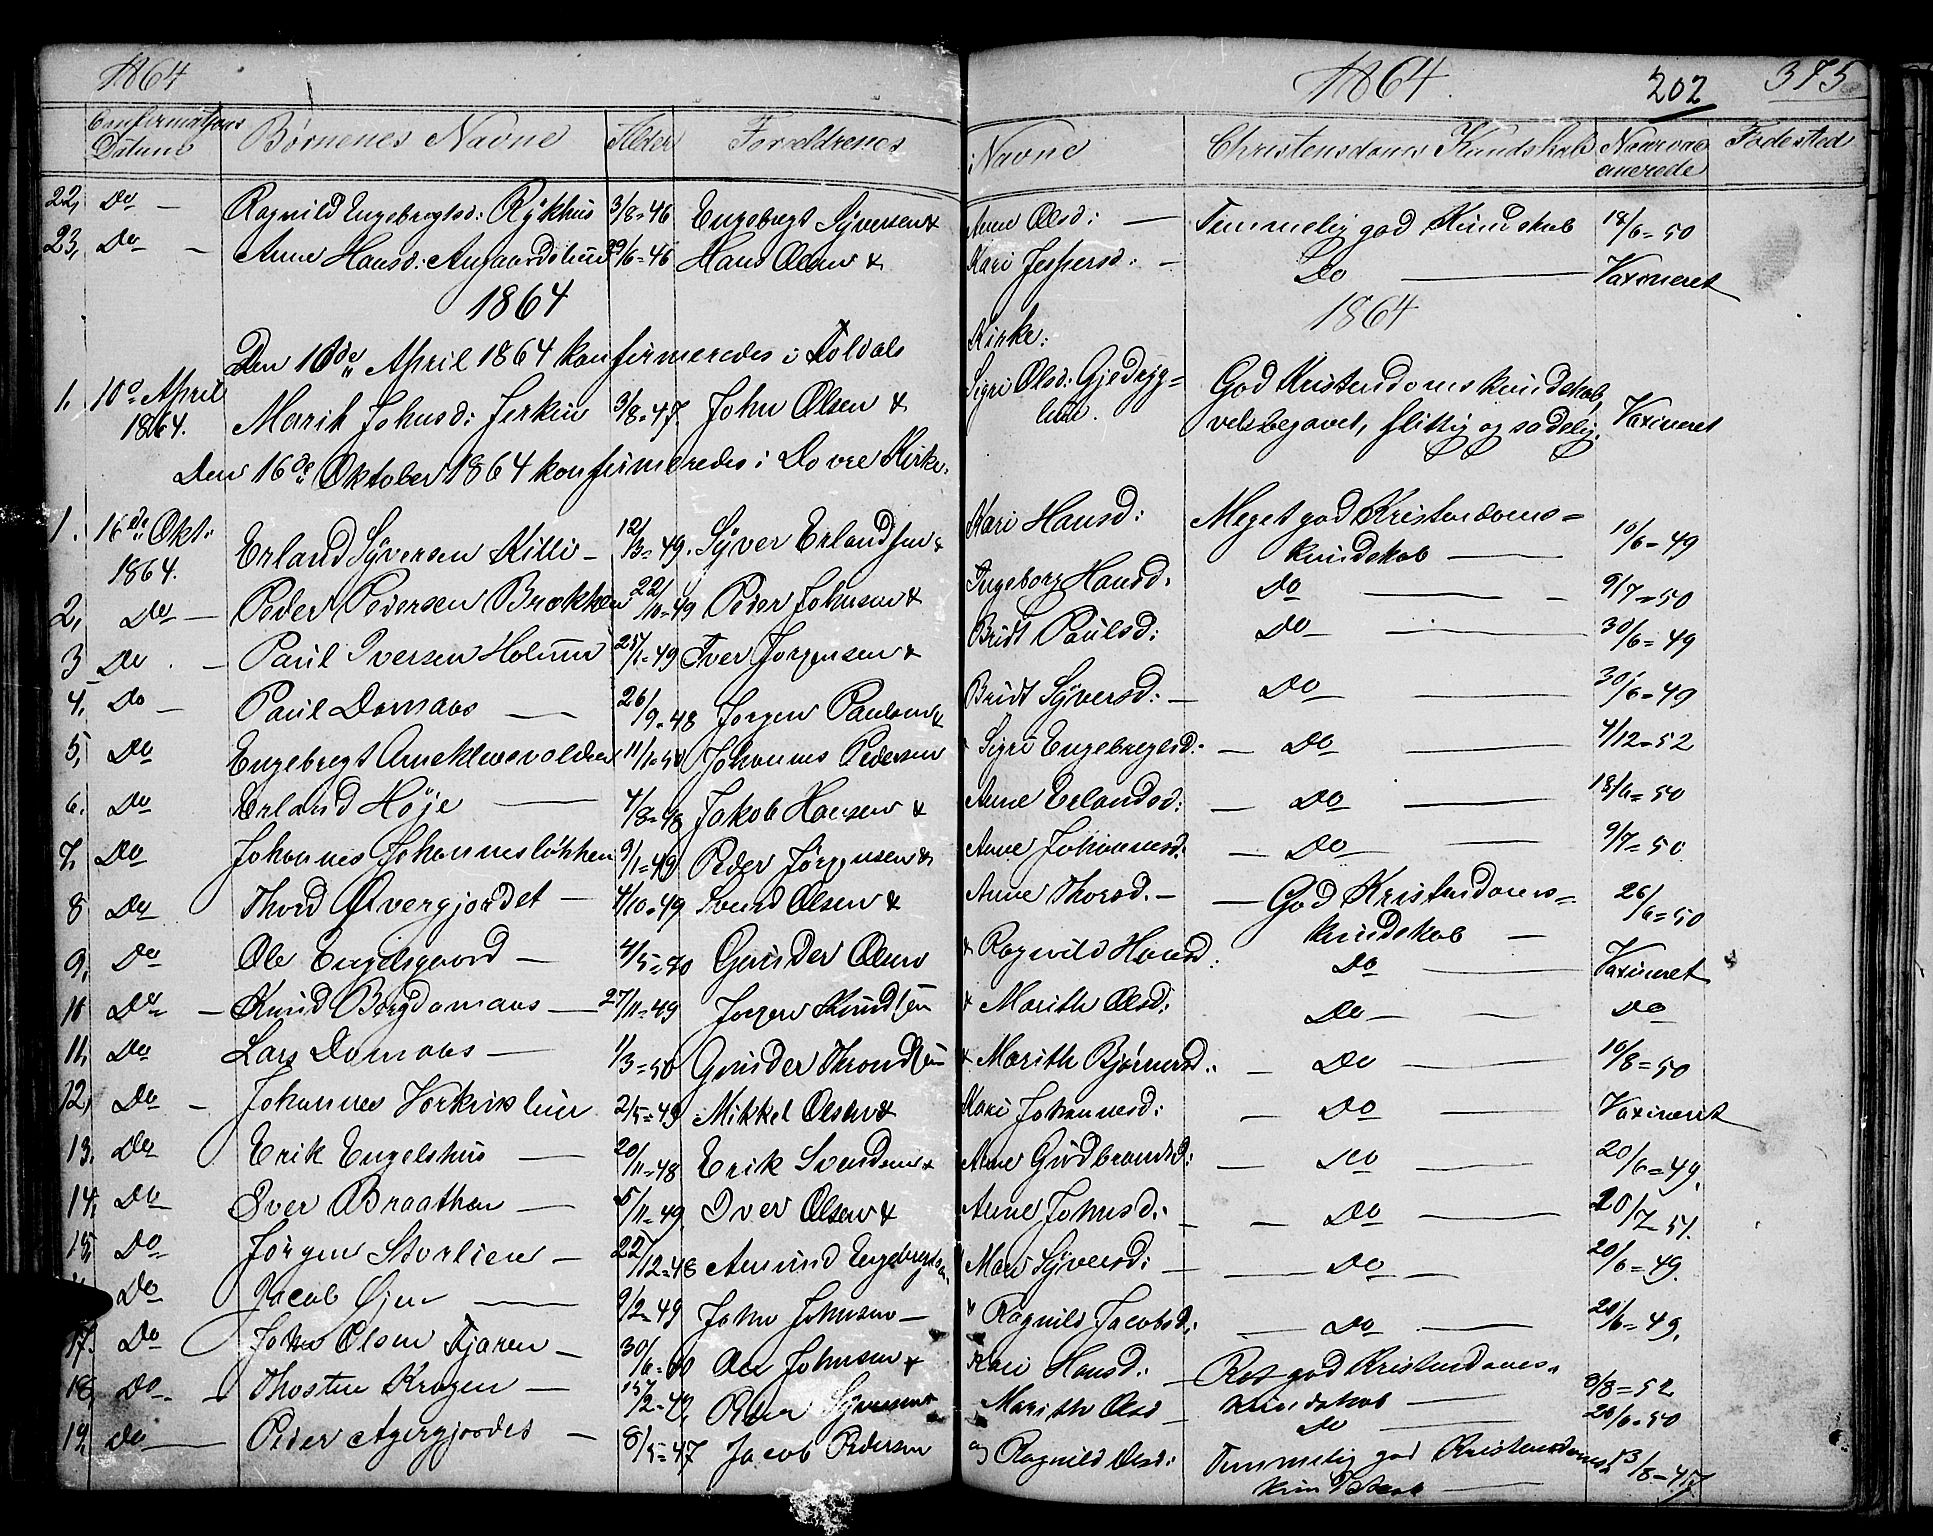 1864
1864. 202 375
Confirmations Datum Børnenes Navne Alder Forældrenes Navne Christendoms Kundskab Naar vac cinerede Fødested
22, Do — Ragnild Engebregtsd: Rykhus 3/8=46 Engebregt Syversen & Anne Olsd: — Temmelig god Kundskab 18/6=50
23, Do — Anne Hansd: Angaardsliund 29/6=46 Hans Olsen & Kari Jespersd: — Do — Vaxineret
1864 1864
Den 10de April 1864 konfirmeredes i Foldals Kirke:
1. 10de April 1864. Marit Johnsd: Jerkin 3/8=47. John Olsen & Sigri Olsd: Gjedryg= lien. God Kristendomskundskab, velbegavet, flittig og sædelig. Vaxineret
Den 16de Oktober 1864 konfirmeredes i Dovre Kirke.
1. 16de Okt: 1864. Erland Syversen Killi — 12/3=49. Syver Erlandsen & Kari Hansd: Meget god Kristendoms= kundskab — 10/6=49
2, Do — Peder Pedersen Brækken 22/10=49 Peder Johnsen & Ingeborg Hansd: Do — 9/7=50
3 Do — Paul Iversen Holum 25/1=49 Iver Jorgensen & Bridt Paulsd: Do — 30/6=49
4, Do — Paul Domaas — 26/9=48 Jorgen Paulsen & Bridt Syversd: — Do — 30/6=49
5, Do Engebregt Arneklevsvolden 11/1=50 Johannes Pedersen & Sigri Engebregtsd: — Do — 4/12=52
6. Do Erland Höje — 4/8=48 Jakob Hansen & Anne Erlandsd: — Do — 18/6=50
7, Do Johannes Johannesløkken 9/1=49 Peder Jørgensen & Anne Johannesd: — Do — 9/7=50.
8 Do Thord Øvergjordet — 4/10=49 Svend Olsen & Anne Thorsd. — God Kristendoms= kundskab — 26/6=50
9, Do Ole Engelsgaard — 4/5=50 Gunder Olsen & Ragnild Hansd: Do — Vaxineret
10 Do — Knud Bergdomaas — 27/11=49 Jorgen Knudsen & Marith Olsd: Do — Do
11, Do Lars Domaas — 1/3=50 Gunder Throndsen & Marith Bjørnersd: Do — 10/8=50
12, Do — Johannes Vorkinslien 2/5=49 Mikkel Olsen & Kari Johannesd: — Do — Vaxineret
13. Do Erik Engelshus — 20/11=48 Erik Svendsen & Anne Gudbrandsd: — Do — 20/6=49.
14, Do Iver Braathen — 5/11=49 Iver Olsen & Anne Johnsd: — Do — 20/7=51.
15, Do Jörgen Storlien — 22/12=48 Amund Engebregtsen & Mari Syversd: — Do — 20/6=49.
Do Jacob Øjen — 9/2=49 John Johnsen — & Ragnild Jacobsd: — Do — 20/6=49.
17. Do John Olsen Kjæren — 30/6=50 Ole Johnsen & Kari Hansd: — Ret god Kristendoms= kundskab — 8/8=52
18, Do — Thosten Krogen — 15/2=49, Peder Syversen & Marith Olsd — Do — 26/6=50
19, Do — Peder Agergjordet — 8/5=47 Jacob Pedersen og Ragnild Olsd: Temmelig god Kristendoms= kundskab — 13/8=47